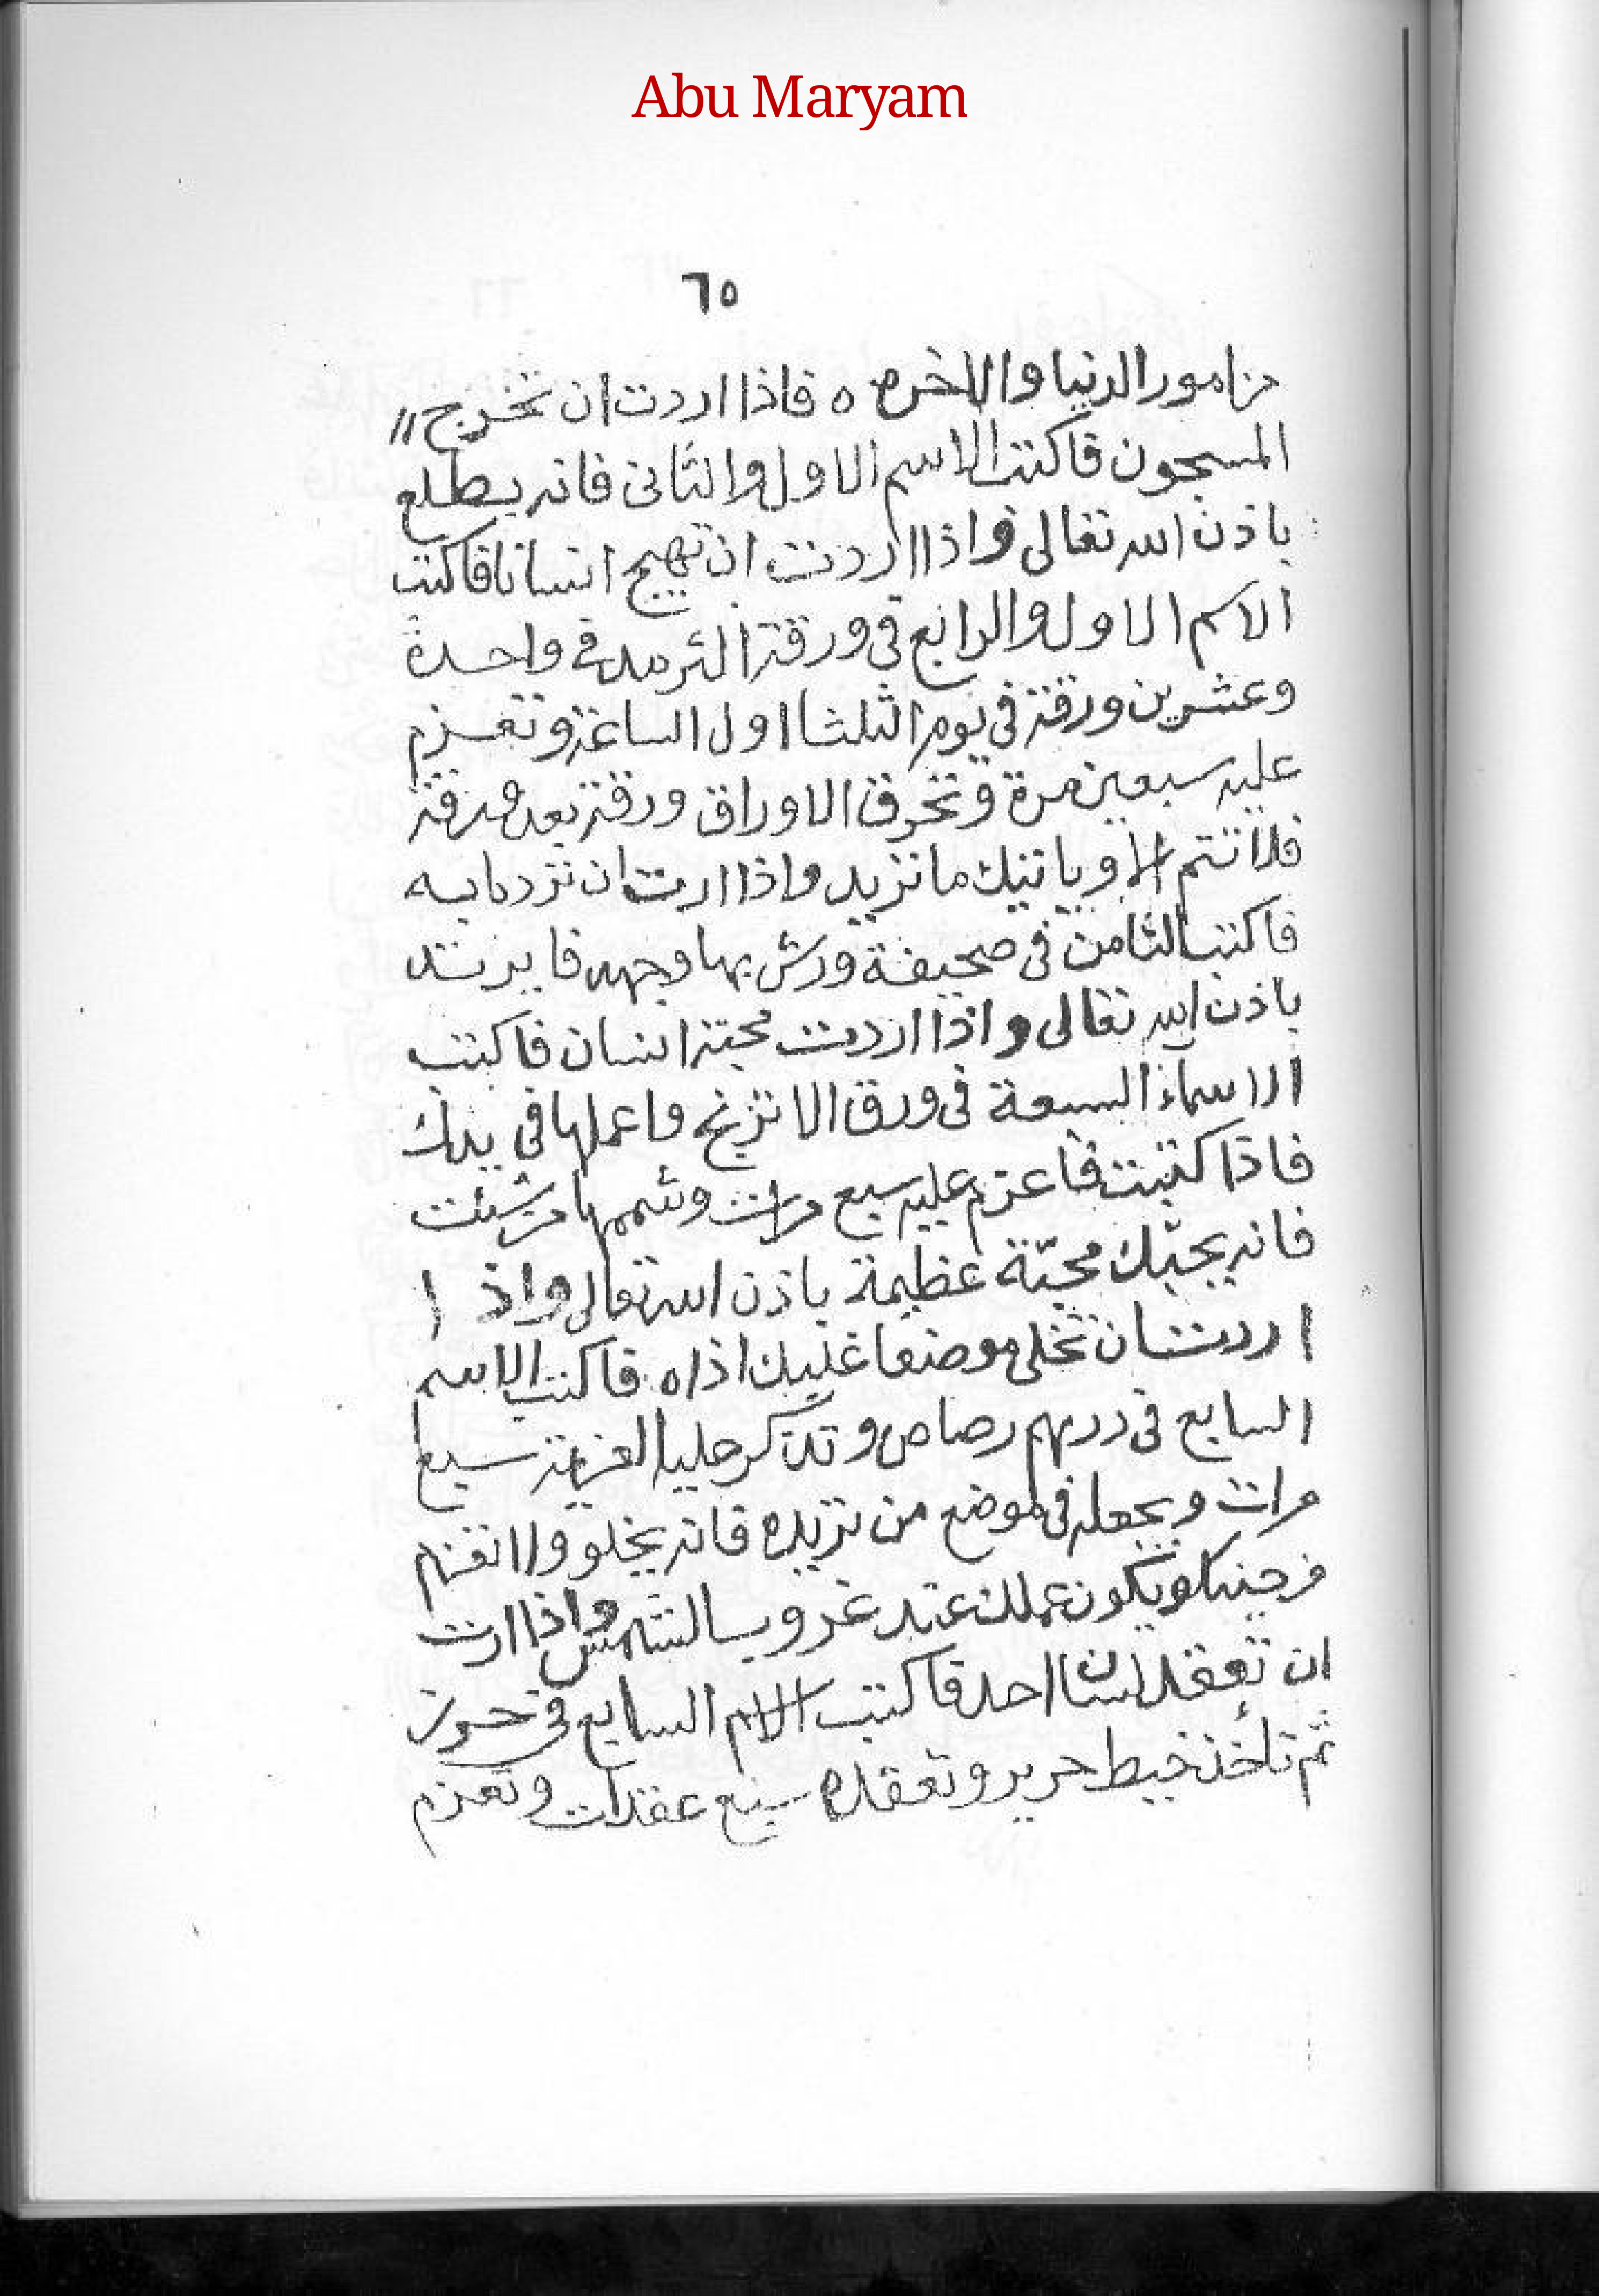 Abu Maryam
٦٥
من امور الدنيا والاخره ٥ فاذا اردت ان تخرج
المسجون فاكتب الاسم الاول والثانى فانه يطلع
باذن الله تعالى واذا اردت ان تهيج انسانا فاكتب
الاسم الاول والرابع فى ورقة فى واحدة
وعشرين ورقة فى يوم الثلثا اول الساعة وتعزم
عليه سبعين مرة وتحرق الاوراق ورقة بعد ورقة
فلا تتم الا وياتيك ما تريد واذا اردت ان ترد
فاكتب الثامن فى صحيفة ورش بها وجهه
باذن الله تعالى واذا اردت محبة انسان فاكتب
الاسماء السبعة فى ورق الاترنج واعملها فى يدك
فاذا كتبت فاعزم عليه سبع مرات وشممها من شئت
فانه يحبّك محبّة عظيمة باذن الله تعالى واذ ا
اردت ان تخلى موضعا عليك اذاه فاكتب الاسم
السابع فى درهم رصاص وتذكر عليها العزيمة سبع
مرات ويجعله فى موضع من تريده فانه يخلو ولا
ويكون عملك عند غروب الشمس واذا ارت
ان تعقد لسان احد فاكتب الاسم السابع فى
ثم تأخذ خيط حرير وتعقده سبع عقدات وتعزم